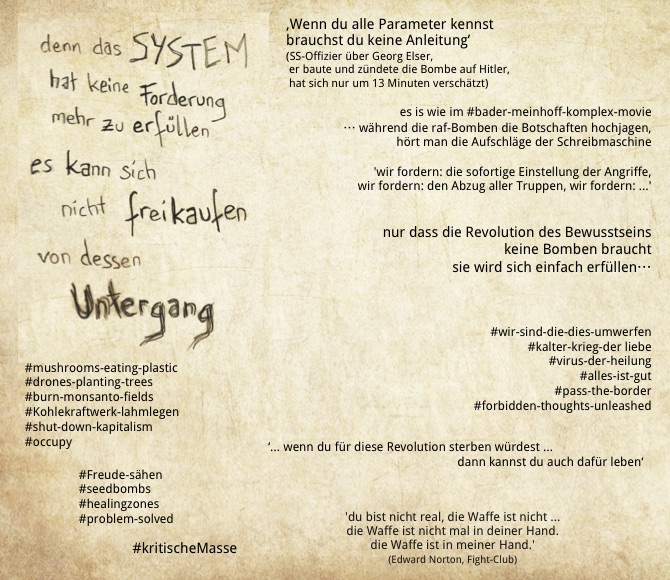 denn das SYSTEM
hat keine Forderung
mehr zu erfüllen
es kann sich
nicht freikaufen
von dessen
Untergang
#mushrooms-eating-plastic
#drones-planting-trees
#burn-monsanto-fields
#Kohlekraftwerk-lahmlegen
#shut-down-kapitalism
#occupy
#Freude-sähen
#seedbombs
#healingzones
#problem-solved
#kritischeMasse
‚Wenn du alle Parameter kennst
brauchst du keine Anleitung’
(SS-Offizier über Georg Elser,
er baute und zündete die Bombe auf Hitler,
hat sich nur um 13 Minuten verschätzt)
es is wie im #bader-meinhoff-komplex-movie
··· während die raf-Bomben die Botschaften hochjagen,
hört man die Aufschläge der Schreibmaschine
'wir fordern: die sofortige Einstellung der Angriffe,
wir fordern: den Abzug aller Truppen, wir fordern: ...'
nur dass die Revolution des Bewusstseins
keine Bomben braucht
sie wird sich einfach erfüllen···
#wir-sind-die-dies-umwerfen
#kalter-krieg-der liebe
#virus-der-heilung
#alles-ist-gut
#pass-the-border
#forbidden-thoughts-unleashed
‘... wenn du für diese Revolution sterben würdest ...
dann kannst du auch dafür leben‘
'du bist nicht real, die Waffe ist nicht ...
die Waffe ist nicht mal in deiner Hand.
die Waffe ist in meiner Hand.'
(Edward Norton, Fight-Club)